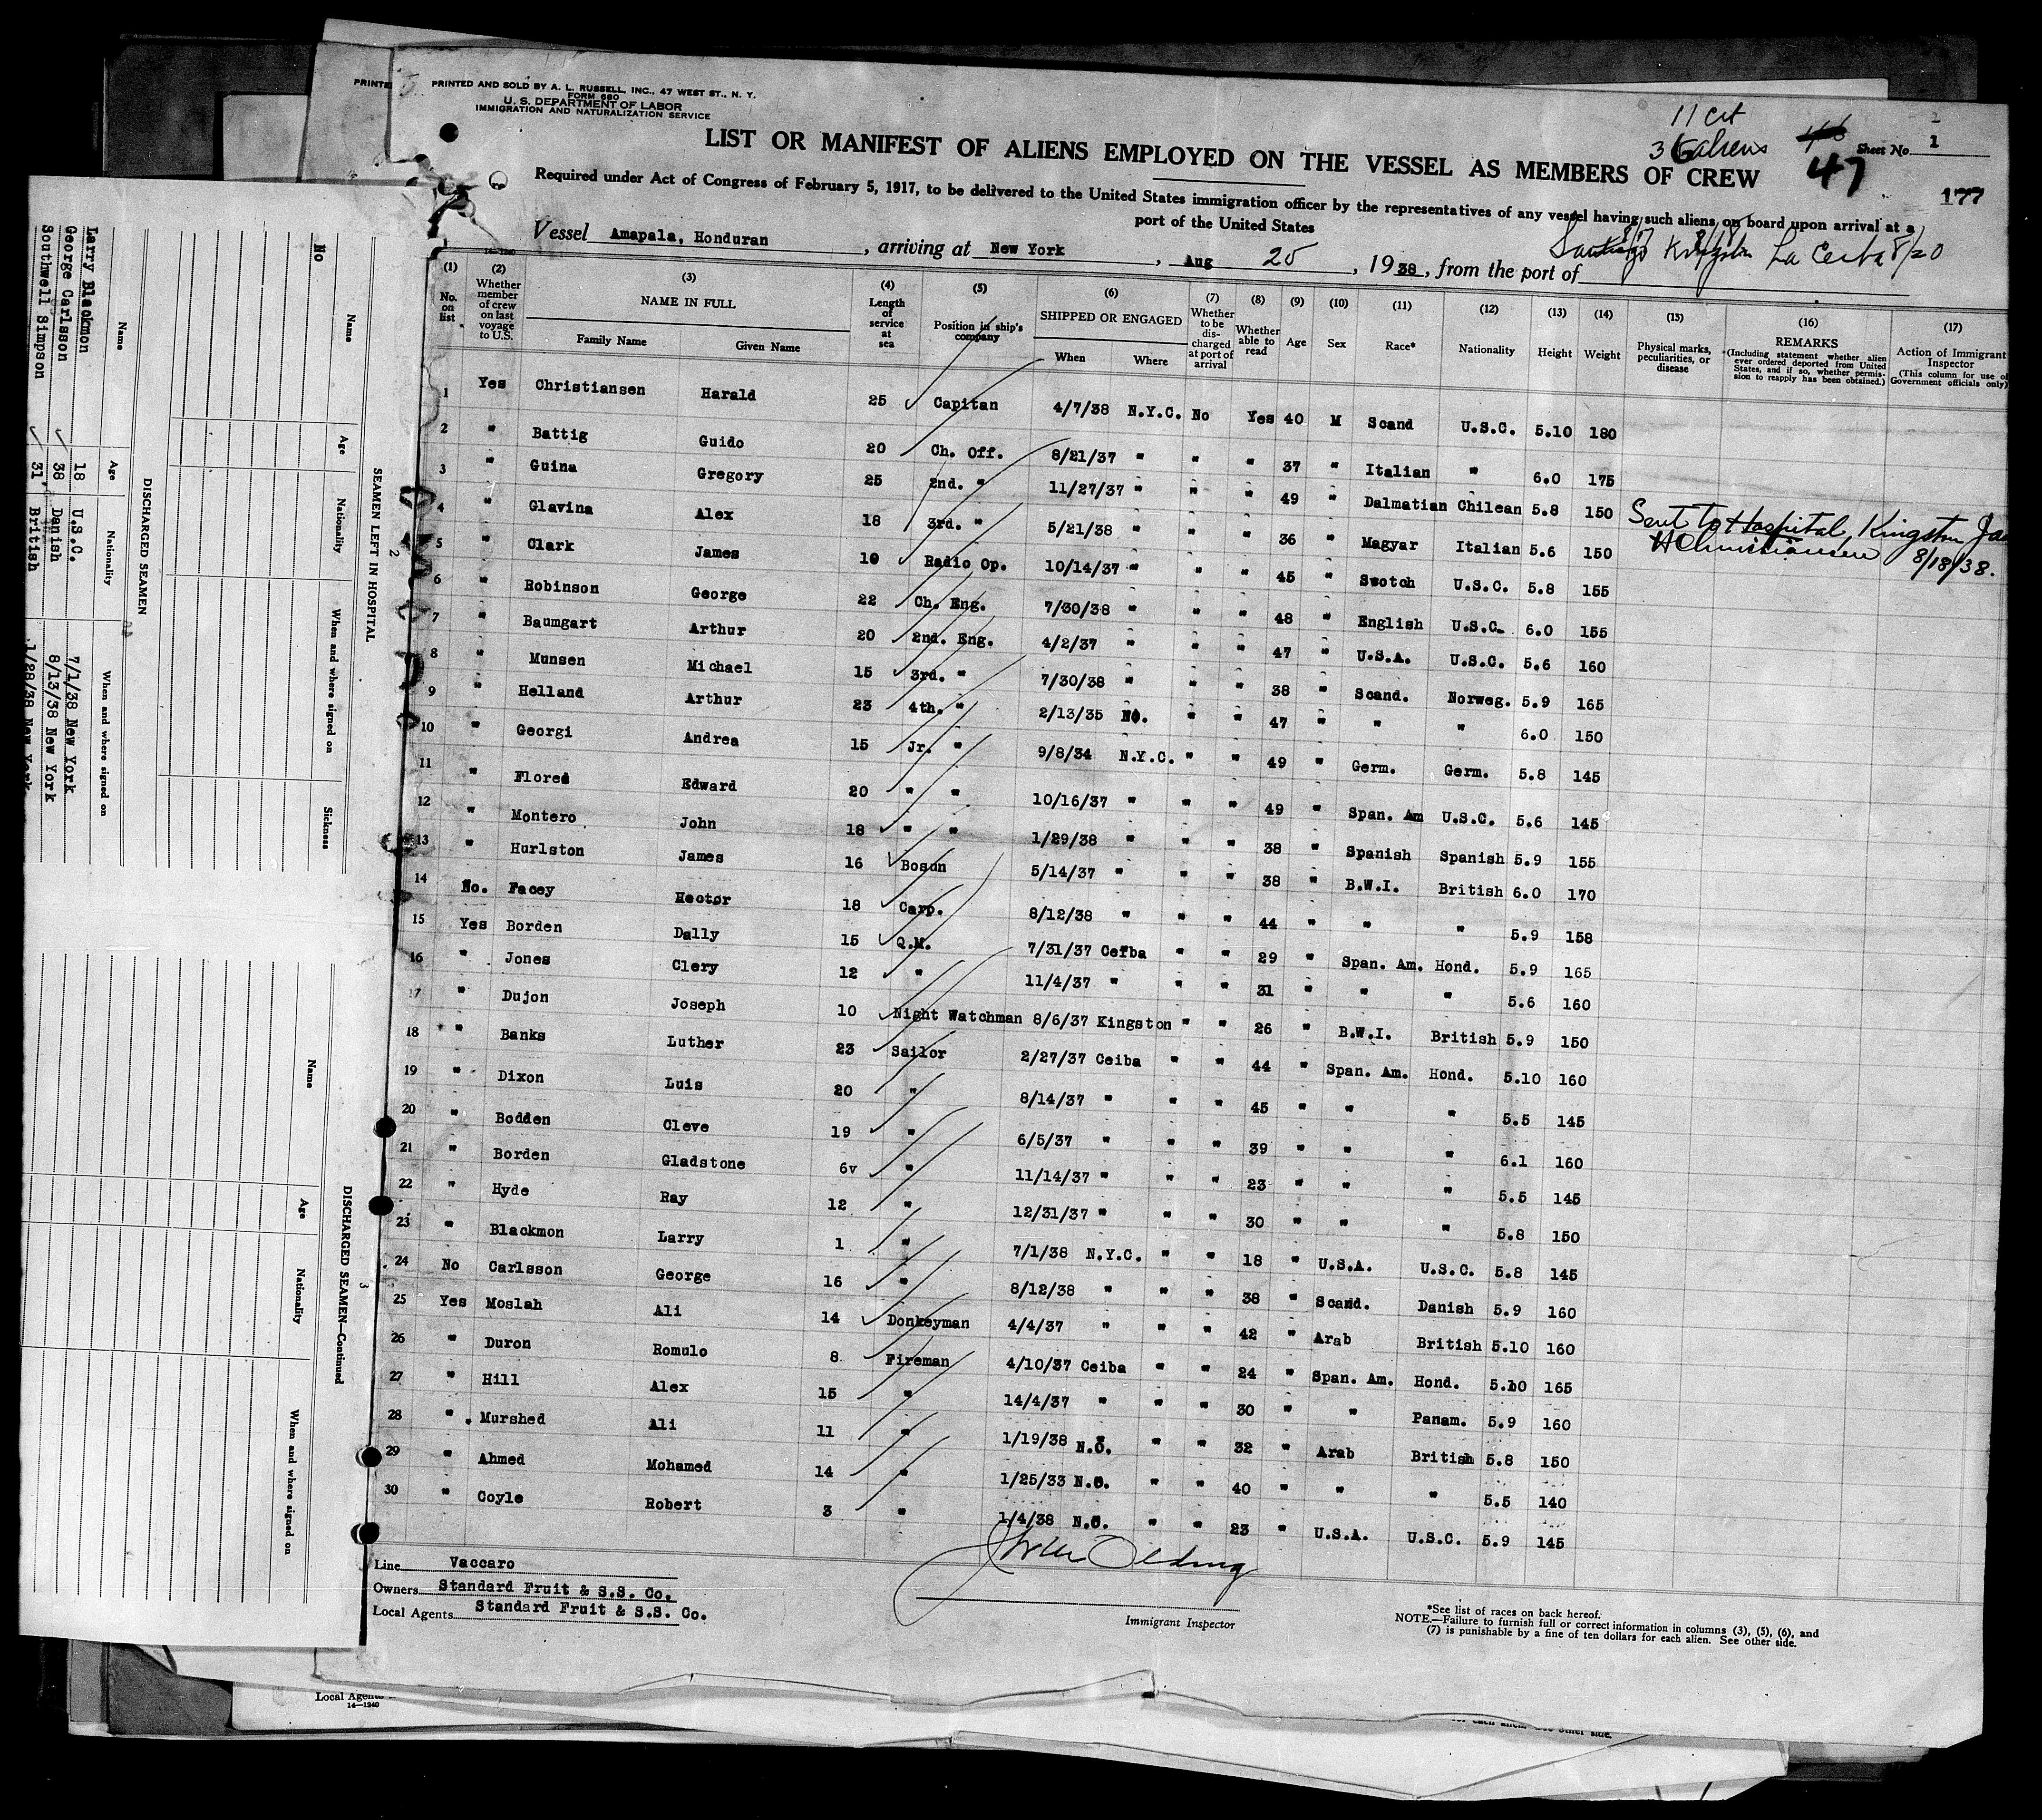 PRINTED AND SOLD BY A. L. RUSSELL, INC., 47 WEST ST., N. Y.
FORM 680
U. S. DEPARTMENT OF LABOR
IMMIGRATION AND NATURALIZATION SERVICE
11 Cit
36 aliens
47
Sheet No. 1
177
LIST OR MANIFEST OF ALIENS EMPLOYED ON THE VESSEL AS MEMBERS OF CREW
Required under Act of Congress of February 5, 1917, to be delivered to the United States immigration officer by the representatives of any vessel having such aliens on board upon arrival at a
port of the United States
Vessel Amapala, Honduran, arriving at New York, Aug 25, 1938, from the port of Santiago Kingston La Ceiba 8/20
(1) No. on list
(2) Whether member of crew on last voyage to U.S.
(3) NAME IN FULL Family Name Given Name
(4) Length of service at sea
(5) Position in ship's company
(6) SHIPPED OR ENGAGED When Where
(7) Whether to be discharged at port of arrival
(8) Whether able to read
(9) Age
(10) Sex
(11) Race*
(12) Nationality
(13) Height
(14) Weight
(15) Physical marks, peculiarities, or disease
(16) REMARKS (Including statement whether alien ever ordered deported from United States, and if so, whether permission to reapply has been obtained.)
(17) Action of Immigrant Inspector (This column for use of Government officials only)
1 Yes Christiansen Harald 25 Capitan 4/7/38 N.Y.C. No Yes 40 M Scand U.S.C. 5.10 180
2 " Battig Guido 20 Ch. Off. 8/21/37 " " " 37 " Italian " 6.0 175
3 " Guina Gregory 25 2nd. " 11/27/37 " " " 49 " Dalmatian Chilean 5.8 150 Sent to Hospital, Kingston Ja
4 " Glavina Alex 18 3rd. " 5/21/38 " " " 36 " Magyar Italian 5.6 150 HChristiansen 8/18/38.
5 " Clark James 10 Radio Op. 10/14/37 " " " 45 " Swotch U.S.C. 5.8 155
6 " Robinson George 22 Ch. Eng. 7/30/38 " " " 48 " English U.S.C. 6.0 155
7 " Baumgart Arthur 20 2nd. Eng. 4/2/37 " " " 47 " U.S.A. U.S.C. 5.6 160
8 " Munsen Michael 15 3rd. " 7/30/38 " " " 38 " Scand. Norweg. 5.9 165
9 " Helland Arthur 23 4th. " 2/13/35 NO. " " 47 " " " 6.0 150
10 " Georgi Andrea 15 Jr. " 9/8/34 N.Y.C. " " 49 " Germ. Germ. 5.8 145
11 " Flores Edward 20 " " 10/16/37 " " " 49 " Span. Am U.S.C. 5.6 145
12 " Montero John 18 " " 1/29/38 " " " 38 " Spanish Spanish 5.9 155
13 " Hurlston James 16 Bosun 5/14/37 " " " 38 " B.W.I. British 6.0 170
14 No. Facey Hector 18 Carp. 8/12/38 " " " 44 " " " 5.9 158
15 Yes Borden Dally 15 Q.M. 7/31/37 Ceiba " " 29 " Span. Am. Hond. 5.9 165
16 " Jones Clery 12 " 11/4/37 " " " 31 " " " 5.6 160
17 " Dujon Joseph 10 Night Watchman 8/6/37 Kingston " " 26 " B.W.I. British 5.9 150
18 " Banks Luther 23 Sailor 2/27/37 Ceiba " " 44 " Span. Am. Hond. 5.10 160
19 " Dixon Luis 20 " 8/14/37 " " " 45 " " " 5.5 145
20 " Bodden Cleve 19 " 6/5/37 " " " 39 " " " 6.1 160
21 " Borden Gladstone 6v " 11/14/37 " " " 23 " " " 5.5 145
22 " Hyde Ray 12 " 12/31/37 " " " 30 " " " 5.8 150
23 " Blackmon Larry 1 " 7/1/38 N.Y.C. " " 18 " U.S.A. U.S.C. 5.8 145
24 No Carlsson George 16 " 8/12/38 " " " 38 " Scand. Danish 5.9 160
25 Yes Moslah Ali 14 Donkeyman 4/4/37 " " " 42 " Arab British 5.10 160
26 " Duron Romulo 8 Fireman 4/10/37 Ceiba " " 24 " Span. Am. Hond. 5.10 165
27 " Hill Alex 15 " 14/4/37 " " " 30 " " Panam. 5.9 160
28 " Murshed Ali 11 " 1/19/38 N.O. " " 32 " Arab British 5.8 150
29 " Ahmed Mohamed 14 " 1/25/33 N.O. " " 40 " " " 5.5 140
30 " Coyle Robert 3 " 1/4/38 N.O. " " 23 " U.S.A. U.S.C. 5.9 145
Line Vaccaro
Owners Standard Fruit & S.S. Co.
Local Agents Standard Fruit & S.S. Co.
Immigrant Inspector
*See list of races on back hereof.
NOTE.—Failure to furnish full or correct information in columns (3), (5), (6), and
(7) is punishable by a fine of ten dollars for each alien. See other side.
SEAMEN LEFT IN HOSPITAL
Name Age Nationality When and where signed on Sickness
No
DISCHARGED SEAMEN
Name Age Nationality When and where signed on
Larry Blackmon 18 U.S.C. 7/1/38 New York
George Carlsson 38 Danish 8/13/38 New York
Southwell Simpson 31 British 1/28/38 New York
DISCHARGED SEAMEN—Continued
Name Age Nationality When and where signed on
2
3
PRINTE
Local Agents
14—1240